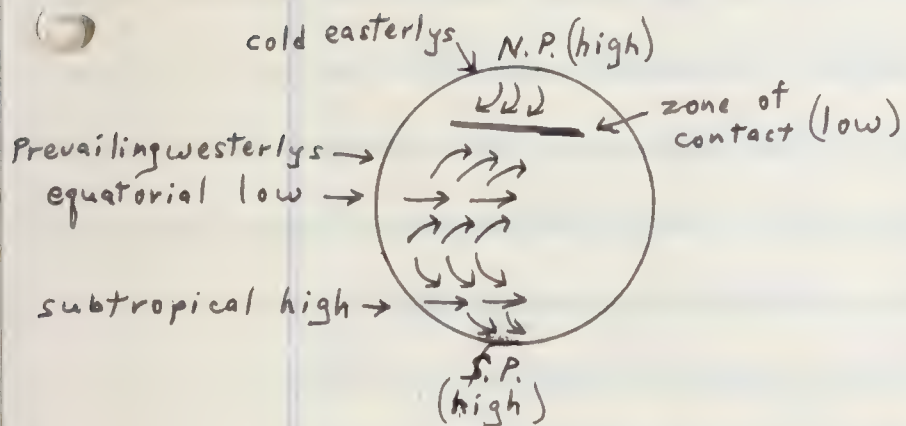 cold easterlys
N.P. (high)
zone of
contact (low)
Prevailing westerlys
equatorial low
subtropical high
S.P.
(high)